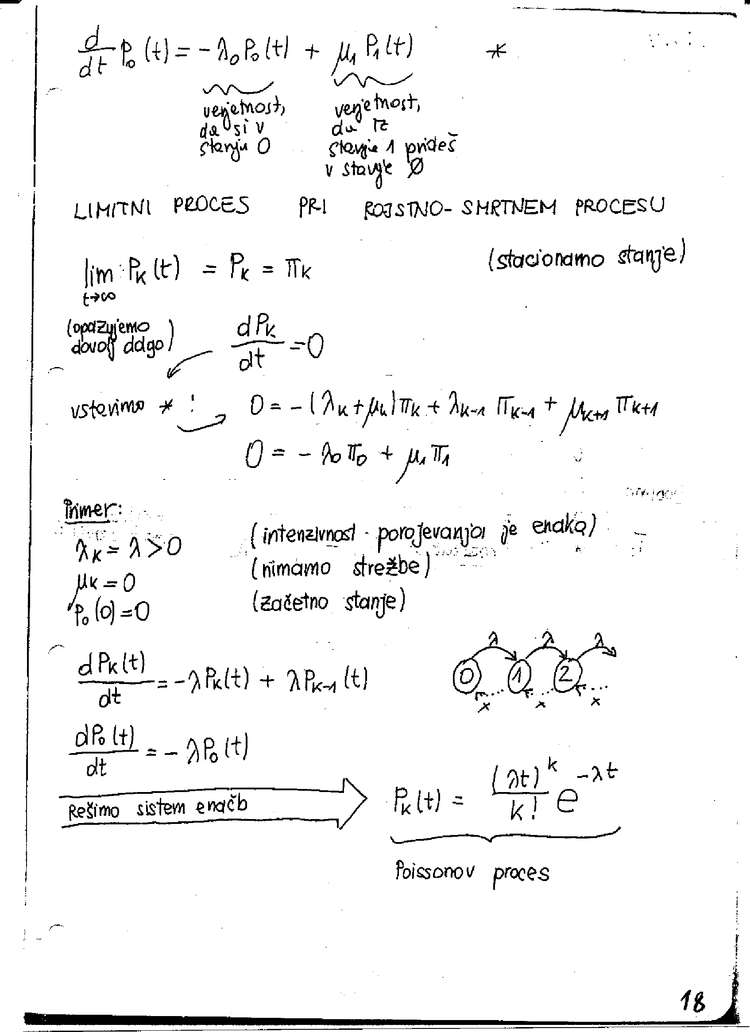 d/dt P₀(t) = -λ₀P₀(t) + μ₁P₁(t) *
verjetnost, da si v stanju 0
verjetnost, da iz stanje 1 prideš v stanje Ø
LIMITNI PROCES PRI ROJSTNO-SMRTNEM PROCESU
lim t→∞ Pₖ(t) = Pₖ = πₖ (stacionarno stanje)
(opazujemo dovolj dolgo) dPₖ/dt = 0
vstavimo * ! 0 = -(λₖ+μₖ)πₖ + λₖ₋₁ πₖ₋₁ + μₖ₊₁ πₖ₊₁
0 = -λ₀π₀ + μ₁π₁
Primer:
λₖ = λ > 0 (intenzivnost porojevanja je enaka)
μₖ = 0 (nimamo strežbe)
P₀(0) = 0 (začetno stanje)
dPₖ(t)/dt = -λPₖ(t) + λPₖ₋₁(t)
λ λ λ
0 1 2
x x x
dP₀(t)/dt = -λP₀(t)
Rešimo sistem enačb
Pₖ(t) = (λt)ᵏ/k! e^-λt
Poissonov proces
18